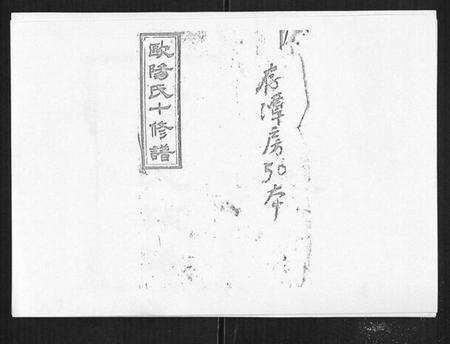 歐陽氏十修譜
存潭房50本